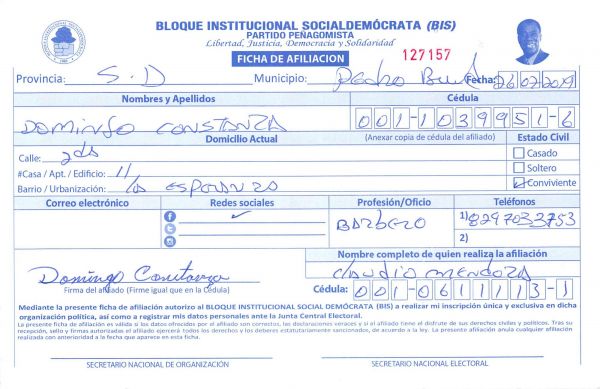 BLOQUE INSTITUCIONAL SOCIALDEMÓCRATA (BIS)
PARTIDO PEÑAGOMISTA
Libertad, Justicia, Democracia y Solidaridad
FICHA DE AFILIACION 127157
Provincia: S.D Municipio: Pedro Fecha: 26 02 2019
Nombres y Apellidos Cédula
DOMINGO CONSTANZA 001-1039951-6
Domicilio Actual (Anexar copia de cédula del afiliado) Estado Civil
Calle: 2da Casado
#Casa / Apt. / Edificio: 11 Soltero
Barrio / Urbanización: La esperanza Conviviente
Correo electrónico Redes sociales Profesión/Oficio Teléfonos
BARBERO 1) 8297033753
2)
Nombre completo de quien realiza la afiliación
Domingo Constanza Claudio Mendoza
Firma del afiliado (Firme igual que en la Cédula) Cédula: 001-0611113-1
Mediante la presente ficha de afiliación autorizo al BLOQUE INSTITUCIONAL SOCIAL DEMÓCRATA (BIS) a realizar mi inscripción única y exclusiva en dicha
organización política, así como a registrar mis datos personales ante la Junta Central Electoral.
La presente ficha de afiliación es válida si los datos ofrecidos por el afiliado son correctos, las declaraciones veraces y si el afiliado tiene el disfrute de sus derechos civiles y políticos. Tras su
recepción, sello y firmas autorizadas el afiliado ejercerá todos los derechos y los deberes estatutariamente sancionados, de acuerdo a la ley. La presente afiliación anula cualquier afiliación
realizada con anterioridad a la fecha que aparece en esta ficha.
SECRETARIO NACIONAL DE ORGANIZACIÓN SECRETARIO NACIONAL ELECTORAL